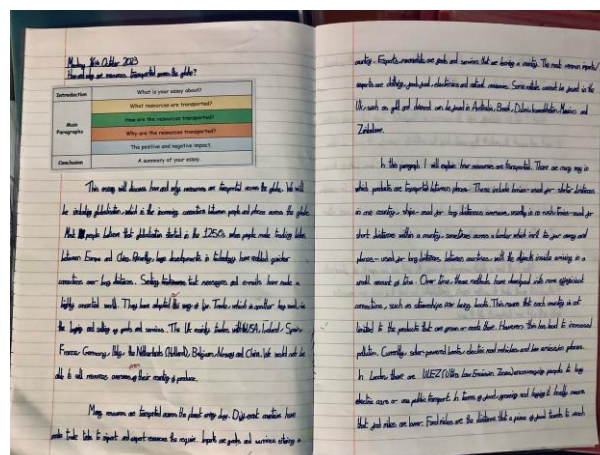 Monday 16th October 2023
How and why are resources transported across the globe?
Introduction
What is your essay about?
Main Paragraphs
What resources are transported?
How are the resources transported?
Why are the resources transported?
The positive and negative impact.
Conclusion
A summary of your essay.
This essay will discuss how and why resources are transported across the globe. We will
be including globalisation, which is the increasing connection between people and places across the globe.
Most people believe that globalisation started in the 1250s when people made trading links
between Europe and China. Recently, huge developments in technology have enabled quicker
connections over long distances. Sending messages and e-mails have made a
highly connected world. They have adapted the way of life. Trade, which is another key word, is
the buying and selling of goods and services. The UK mainly trades with USA, Ireland, Spain,
France, Germany, Italy, the Netherlands (Holland), Belgium, Norway and China. We would not be
able to sell resources overseas their country produce.
Many resources are transported across the planet every day. Different countries have
made trade links to import and export resources they require. Imports are goods and services entering a
country. Exports, meanwhile, are goods and services that are leaving a country. The most common imports/
exports are clothing, food, electronics and natural resources. Some metals cannot be found in the
UK such as gold and diamond can be found in Australia, Brazil, Mexico and
Zimbabwe.
In this paragraph I will explain how resources are transported. There are many ways in
which products are transported between places. These include lorries - used for shorter distances
in one country, ships - used for long distances overseas, usually in
short distances within a country, sometimes across a border which isn't too far away and
planes - used for long distances between countries, with the objects inside arriving in a
small amount of time. Over time, these methods have developed into more efficient
connections, such as steamships over being boats. This means that each country is not
limited to the products that are grown or made there. However, this has lead to increased
pollution. Currently, solar-powered boats, electric and low emission planes.
In London there are ULEZ (Ultra Low Emission Zones) encouraging people to buy
electric cars or use public transport. In terms of food, growing and buying it locally means
that food miles are lower. Food miles are the distance that a piece of food travels to reach